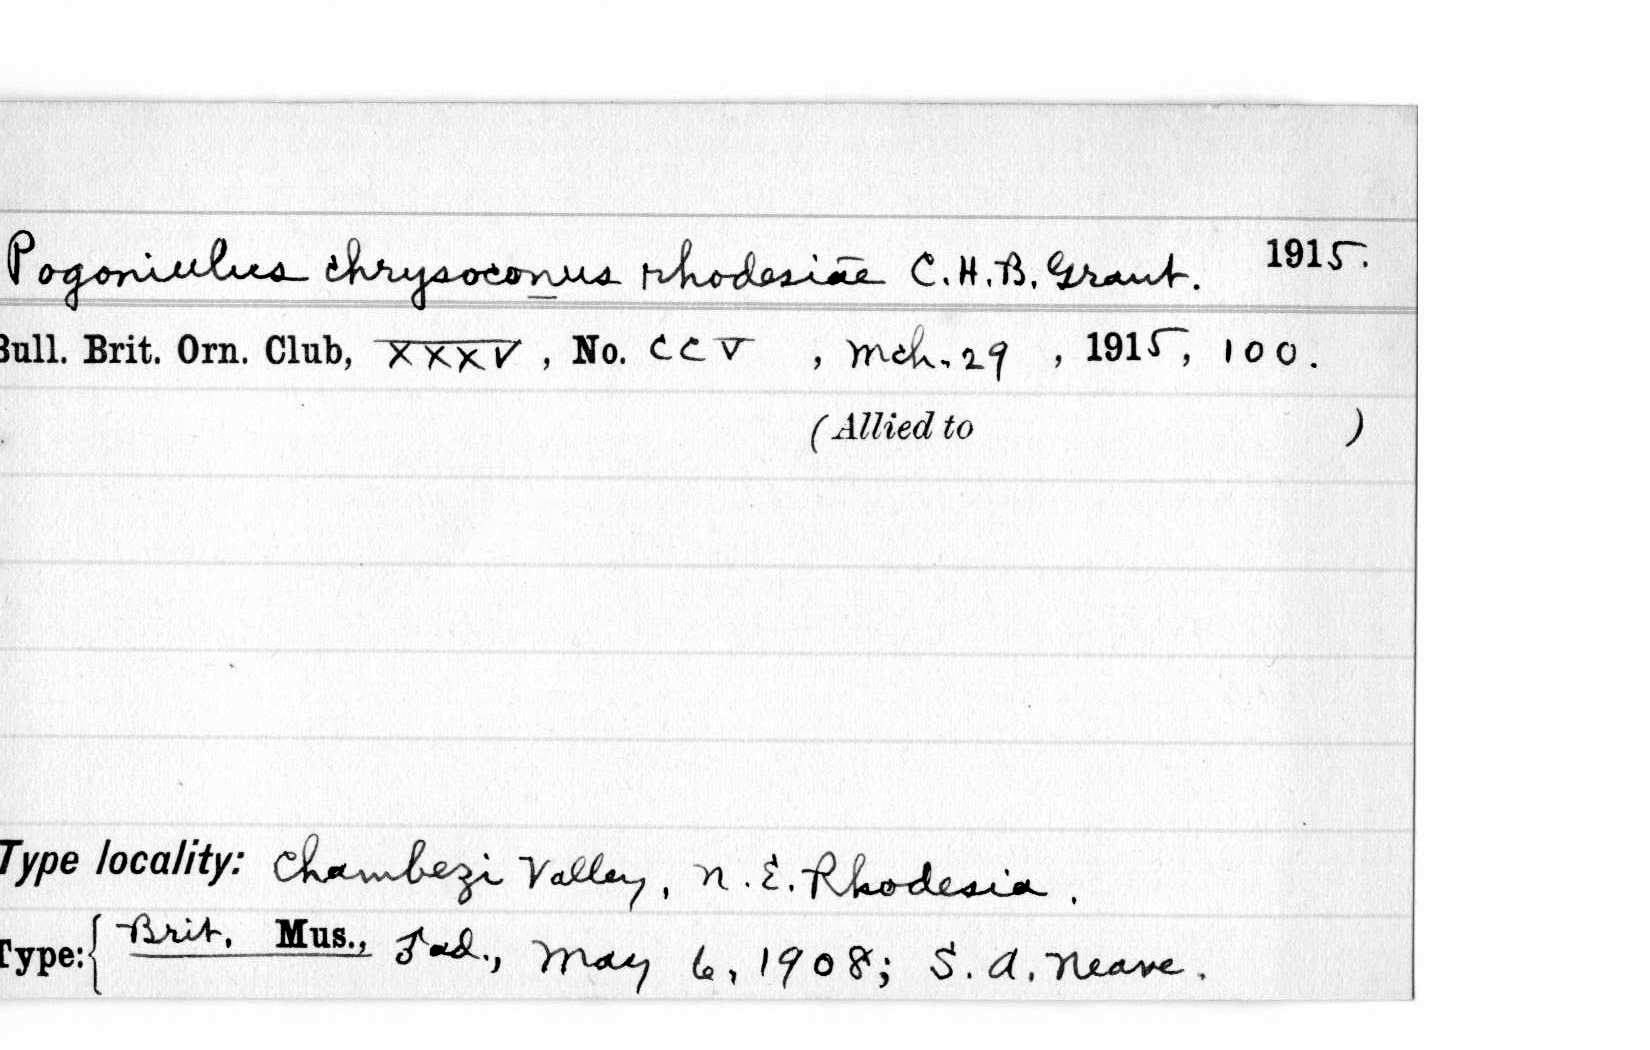 Pogoniulus chrysoconus rhodesiae C.H.B. Grant. 1915.
Bull. Brit. Orn. Club, XXXV, No. CCV, Mch. 29, 1915, 100.
(Allied to )
Type locality: Chambezi Valley, N.E. Rhodesia.
Type: { Brit. Mus., ad., May 6, 1908; S.A. Neave.